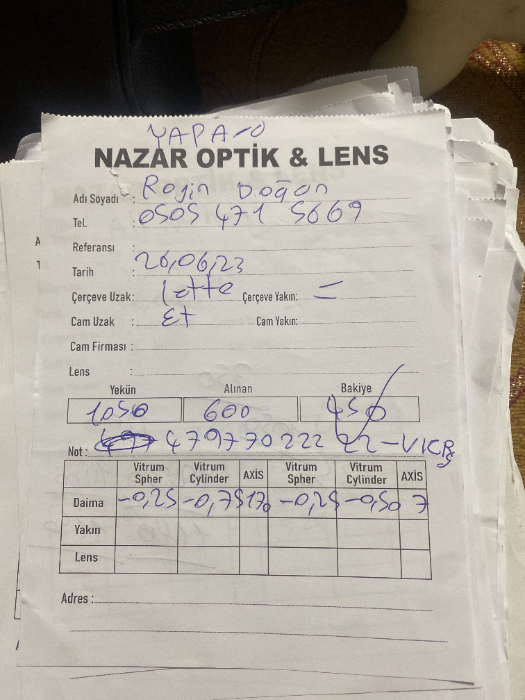 YAPA-O
NAZAR OPTİK & LENS
Adı Soyadı : Rojin Doğan
Tel. : 0505 471 5669
Referansı :
Tarih : 26,06,23
Çerçeve Uzak: Lotte Çerçeve Yakın: =
Cam Uzak : Et Cam Yakın:
Cam Firması :
Lens :
Yekün Alınan Bakiye
1050 600 450
Not : 479770222 22-VKR
Vitrum Spher Vitrum Cylinder AXİS Vitrum Spher Vitrum Cylinder AXİS
Daima -0,25 -0,75 170 -0,25 -0,50 7
Yakın
Lens
Adres :